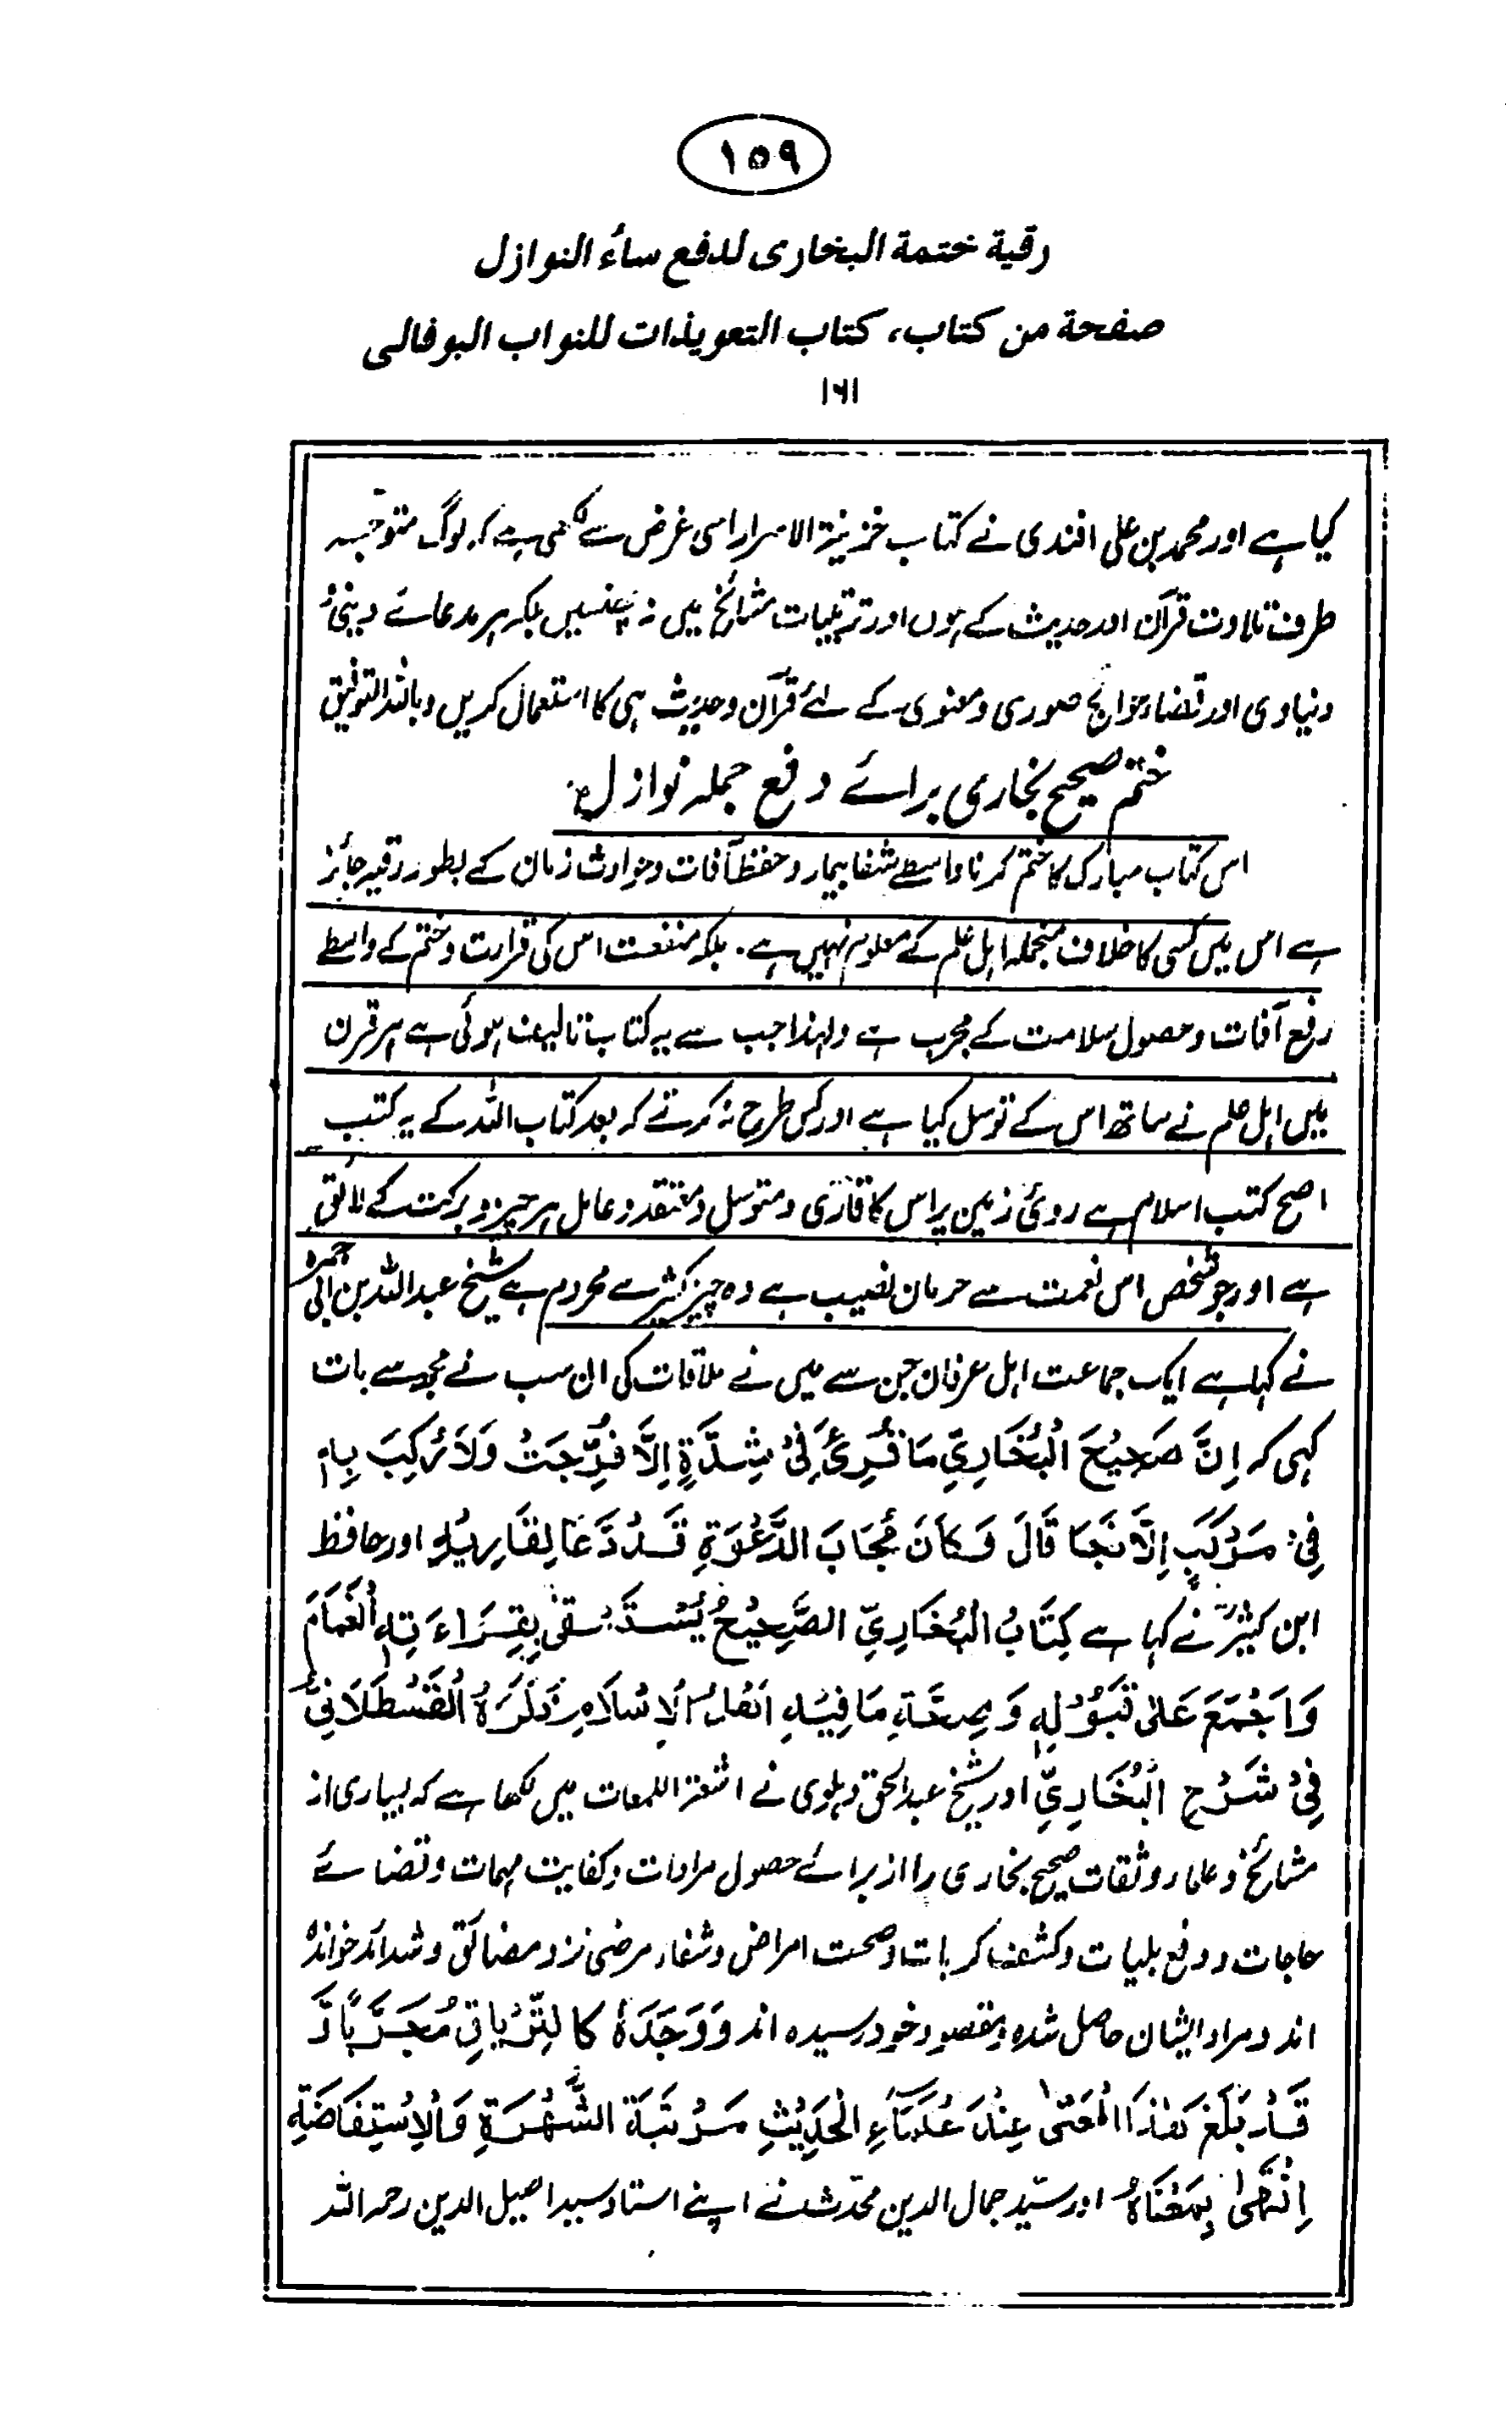 ١٥٩
رقية ختمة البخارى للدفع سائر النوازل
صفحة من كتاب، كتاب التعويذات للنواب البوفالى
۱۶۱
کیا ہے اور محمد بن علی افندی نے کتاب خزینۃ الاسرار اسی غرض سے لکھی ہے کہ لوگ متوجہ
طرف تلاوت قرآن اور حدیث کے ہوں اور ترتیبات مشائخ میں نہ پھنسیں بلکہ ہر مدعائے دینی و
دنیاوی اور قضاء حوائج صوری و معنوی کے لئے قرآن و حدیث ہی کا استعمال کریں و باللہ التوفیق
ختم صحیح بخاری برائے دفع جملہ نوازل
اس کتاب مبارک کا ختم کرنا واسطے شفا بیمار و حفظ آفات و حوادث زمان کے بطور رقیہ جائز
ہے اس میں کسی کا خلاف منجملہ اہل علم کے معلوم نہیں ہے۔ بلکہ منفعت اس کی قرارت و ختم کے واسطے
رفع آفات و حصول سلامت کے مجرب ہے ولہذا جب سے یہ کتاب تالیف ہوئی ہے ہر قرن
میں اہل علم نے ساتھ اس کے توسل کیا ہے اور کس طرح نہ کرتے کہ بعد کتاب اللہ کے یہ کتب
اصح کتب اسلام ہے روئے زمین پر اس کا قاری و متوسل و معتقد و عامل ہر چیز و برکت کے لائق
ہے اور جو شخص اس نعمت سے حرمان نصیب ہے وہ چیز کثیر سے محروم ہے شیخ عبداللہ بن ابی جمرہ
نے کہا ہے ایک جماعت اہل عرفان جن سے میں نے ملاقات کی ان سب نے مجھ سے بات
کہی کہ اِنَّ صَحِيْحَ الْبُخَارِيِّ مَا قُرِئَ فِيْ شِدَّةٍ اِلَّا فُرِّجَتْ وَلَا رُكِبَ بِهٖ
فِيْ مَرْكَبٍ اِلَّا نَجَا قَالَ وَكَانَ مُجَابَ الدَّعْوَةِ قَدْ دَعَا لِقَارِئِهٖ اور حافظ
ابن کثیرؒ نے کہا ہے كِتَابُ الْبُخَارِيِّ الصَّحِيْحُ يُسْتَسْقٰى بِقِرَاءَتِهِ الْغَمَامُ
وَاَجْمَعَ عَلٰى قَبُوْلِهٖ وَصِحَّةِ مَا فِيْهِ اَهْلُ الْاِسْلَامِ ذَكَرَهُ الْقَسْطَلَانِيُّ
فِيْ شَرْحِ الْبُخَارِيِّ اور شیخ عبدالحق دہلوی نے اشعۃ اللمعات میں لکھا ہے کہ بسیاری از
مشائخ و علماء و ثقات صحیح بخاری را از برائے حصول مرادات و کفایت مہمات و قضائے
حاجات و دفع بلیات و کشف کربات و صحت امراض و شفاء مرضی نزد مضائق و شدائد خواندہ
اند و مراد ایشان حاصل شدہ و بمقصود خود رسیدہ اند وَوَجَدَهٗ كَالتِّرْيَاقِ مُجَرَّبًا وَ
قَدْ بَلَغَ هٰذَا الْمَعْنٰى عِنْدَ عُلَمَاءِ الْحَدِيْثِ مَرْتَبَةَ الشُّهْرَةِ وَالْاِسْتِفَاضَةِ
اِنْتَهٰى بِمَعْنَاهُ اور سیّد جمال الدین محدّث نے اپنے استاد سید اصیل الدین رحمہ اللہ